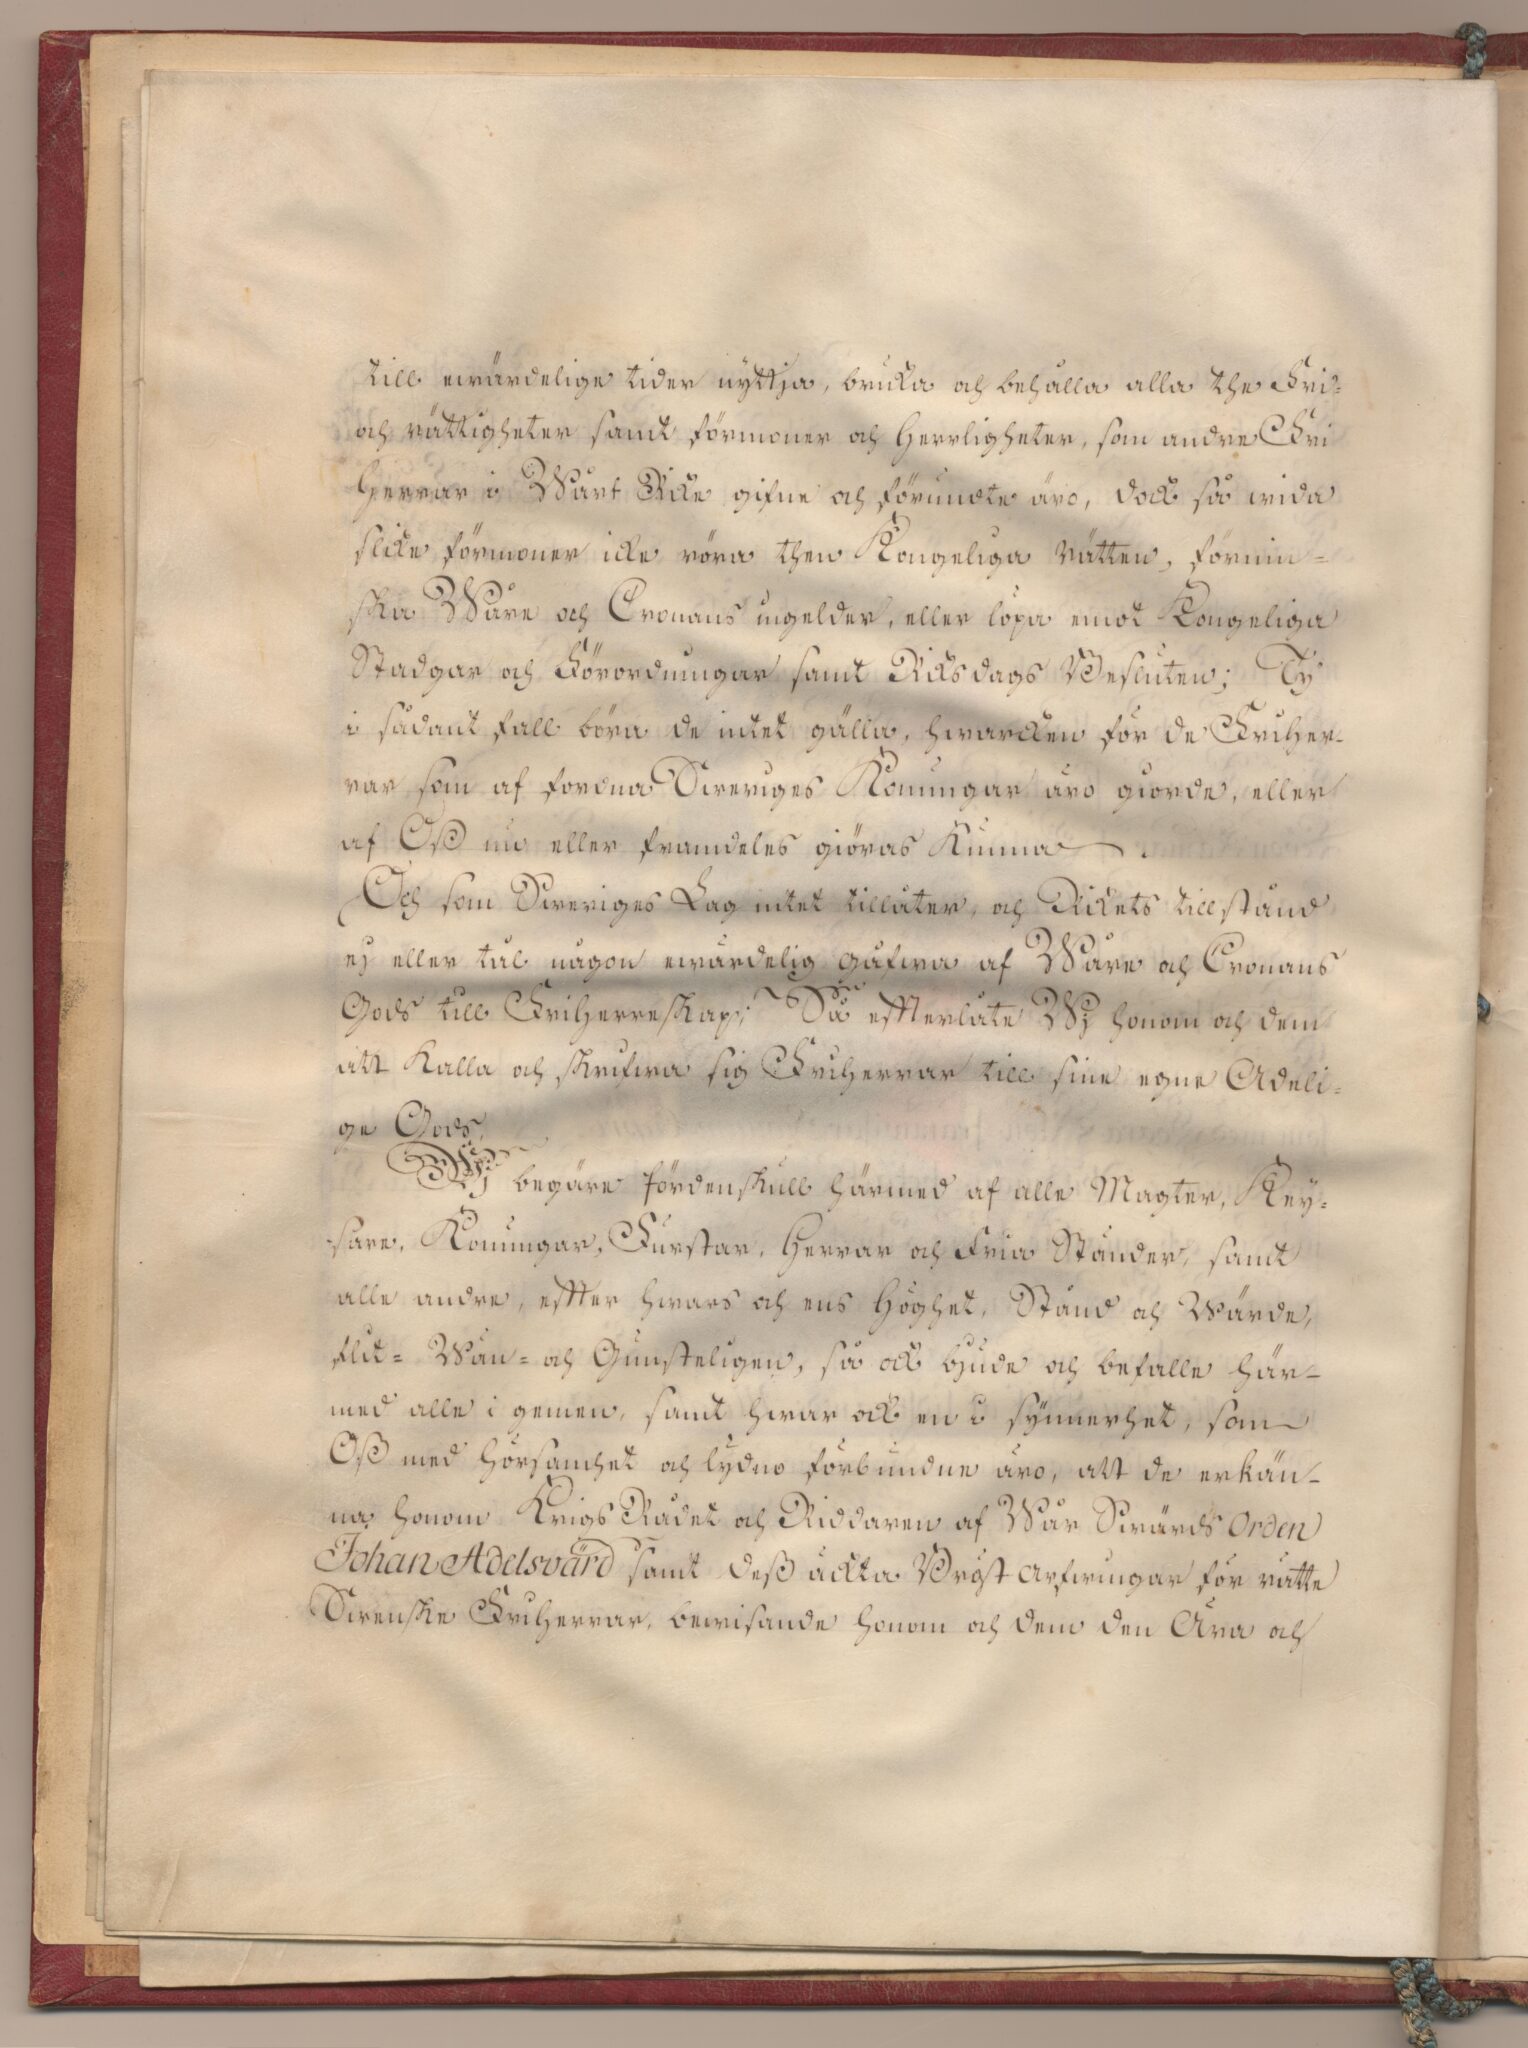 till ewärdelige tider nyttja, bruka och behålla alla the Fri-
och rättigheter samt förmoner och Herrligheter, som andre Fri
Herrar i Wårt Rike gifne och förundte äro, dock så wida
slike förmoner icke röra then Kongeliga rätten, förmin-
ska Wåre och Cronans ingelder, eller löpa emot Kongeliga
Stadgar och Förordningar samt Riksdags Besluten; Ty
i sådant fall böra de intet gälla, hwarcken för de FriHer-
rar som af fordna Sweriges Konungar äro giorde, eller
af Oß nu eller framdeles giöras Kunna.
Och som Sweriges Lag intet tillåter, och Rikets tillstånd
ej eller tål någon ewärdelig gåfwa af Wåre och Cronans
Gods till FriHerreskap; Så effterlåte Wj honom och dem
att Kalla och skrifwa sig FriHerrar till sine egne Adeli-
ge Gods.
Wj begäre fördenskull härmed af alle Magter, Key-
sare, Konungar, Furstar, Herrar och Fria Ständer, samt
alle andre, effter hwars och ens Höghet, Stånd och Wärde,
flit- Wän- och Gunsteligen, så ock bjude och befalle här-
med alle i gemen, samt hwar ock en i synnerhet, som
Oß med hörsamhet och lydno förbundne äro, att de erkän-
na honom KrigsRådet och Riddaren af Wår Swärds Orden
Johan Adelsvärd samt deß äckta Bröst Arfwingar för rätte
Swenske FriHerrar, bewisande honom och dem den Ära och